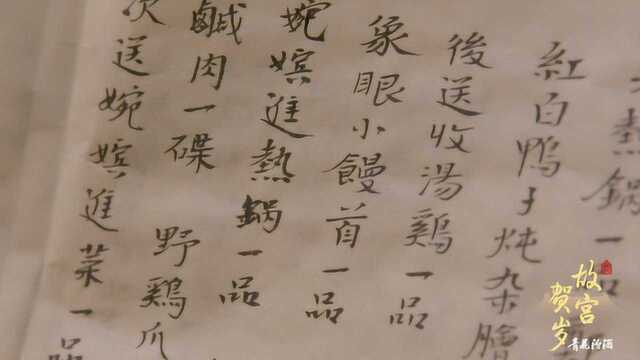 熱鍋一
紅白鴨子炖杂膾
後送收湯鷄一品
象眼小饅首一品
婉嬪進熱鍋一品
鹹肉一碟 野鷄爪
次送婉嬪進菜一品
故宫
贺岁
青花汾酒